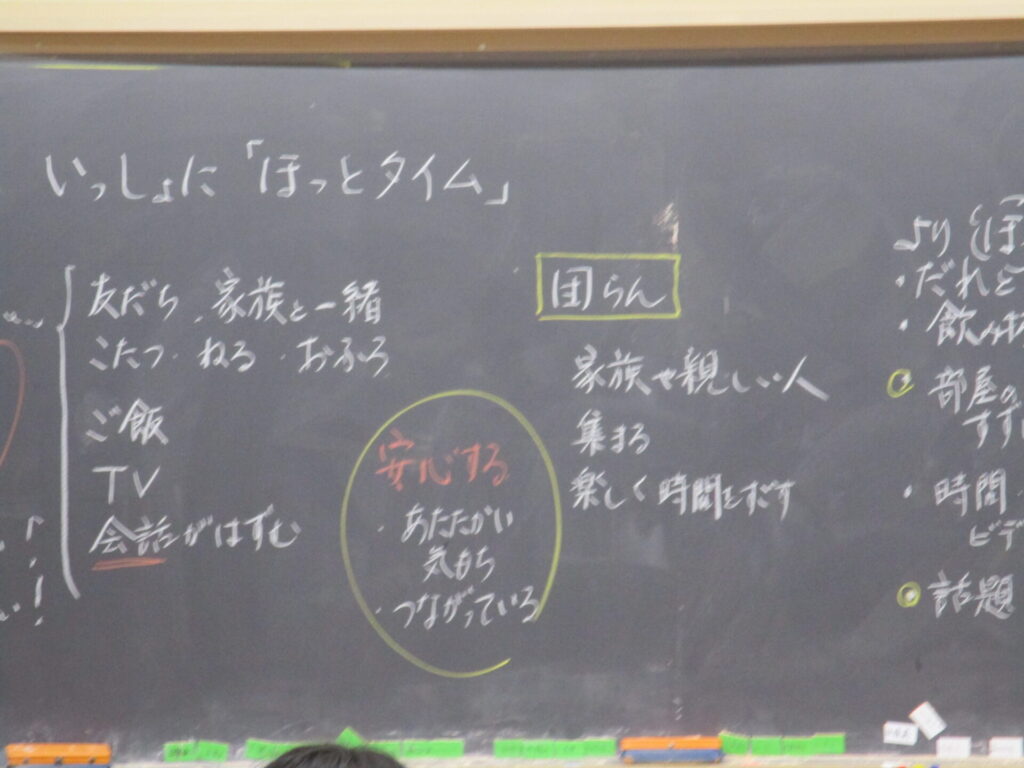 いっしょに「ほっとタイム」
友だち、家族と一緒
こたつ・ねる・おふろ
ご飯
TV
会話がはずむ
安心する
・あたたかい
気もち
・つながっている
団らん
家族や親しい人
集まる
楽しく時間をすごす
より「ほ
・だれと
・飲み
部屋の
・時間
ビデ
話題